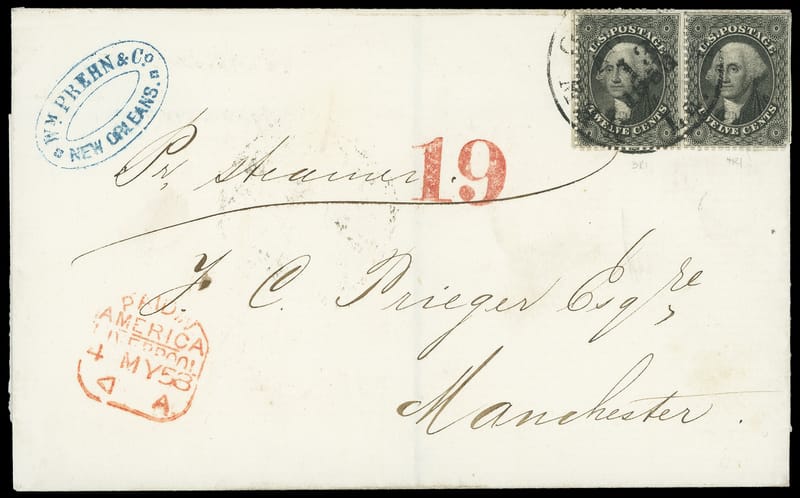 WM PREHN & Co.
NEW ORLEANS.
U.S. POSTAGE
TWELVE CENTS
U.S. POSTAGE
TWELVE CENTS
3R1
4R1
Pr steamer.
19
J. C. Prieger Esqre
Manchester.
PAID IN
AMERICA
LIVERPOOL
4 MY 58
A